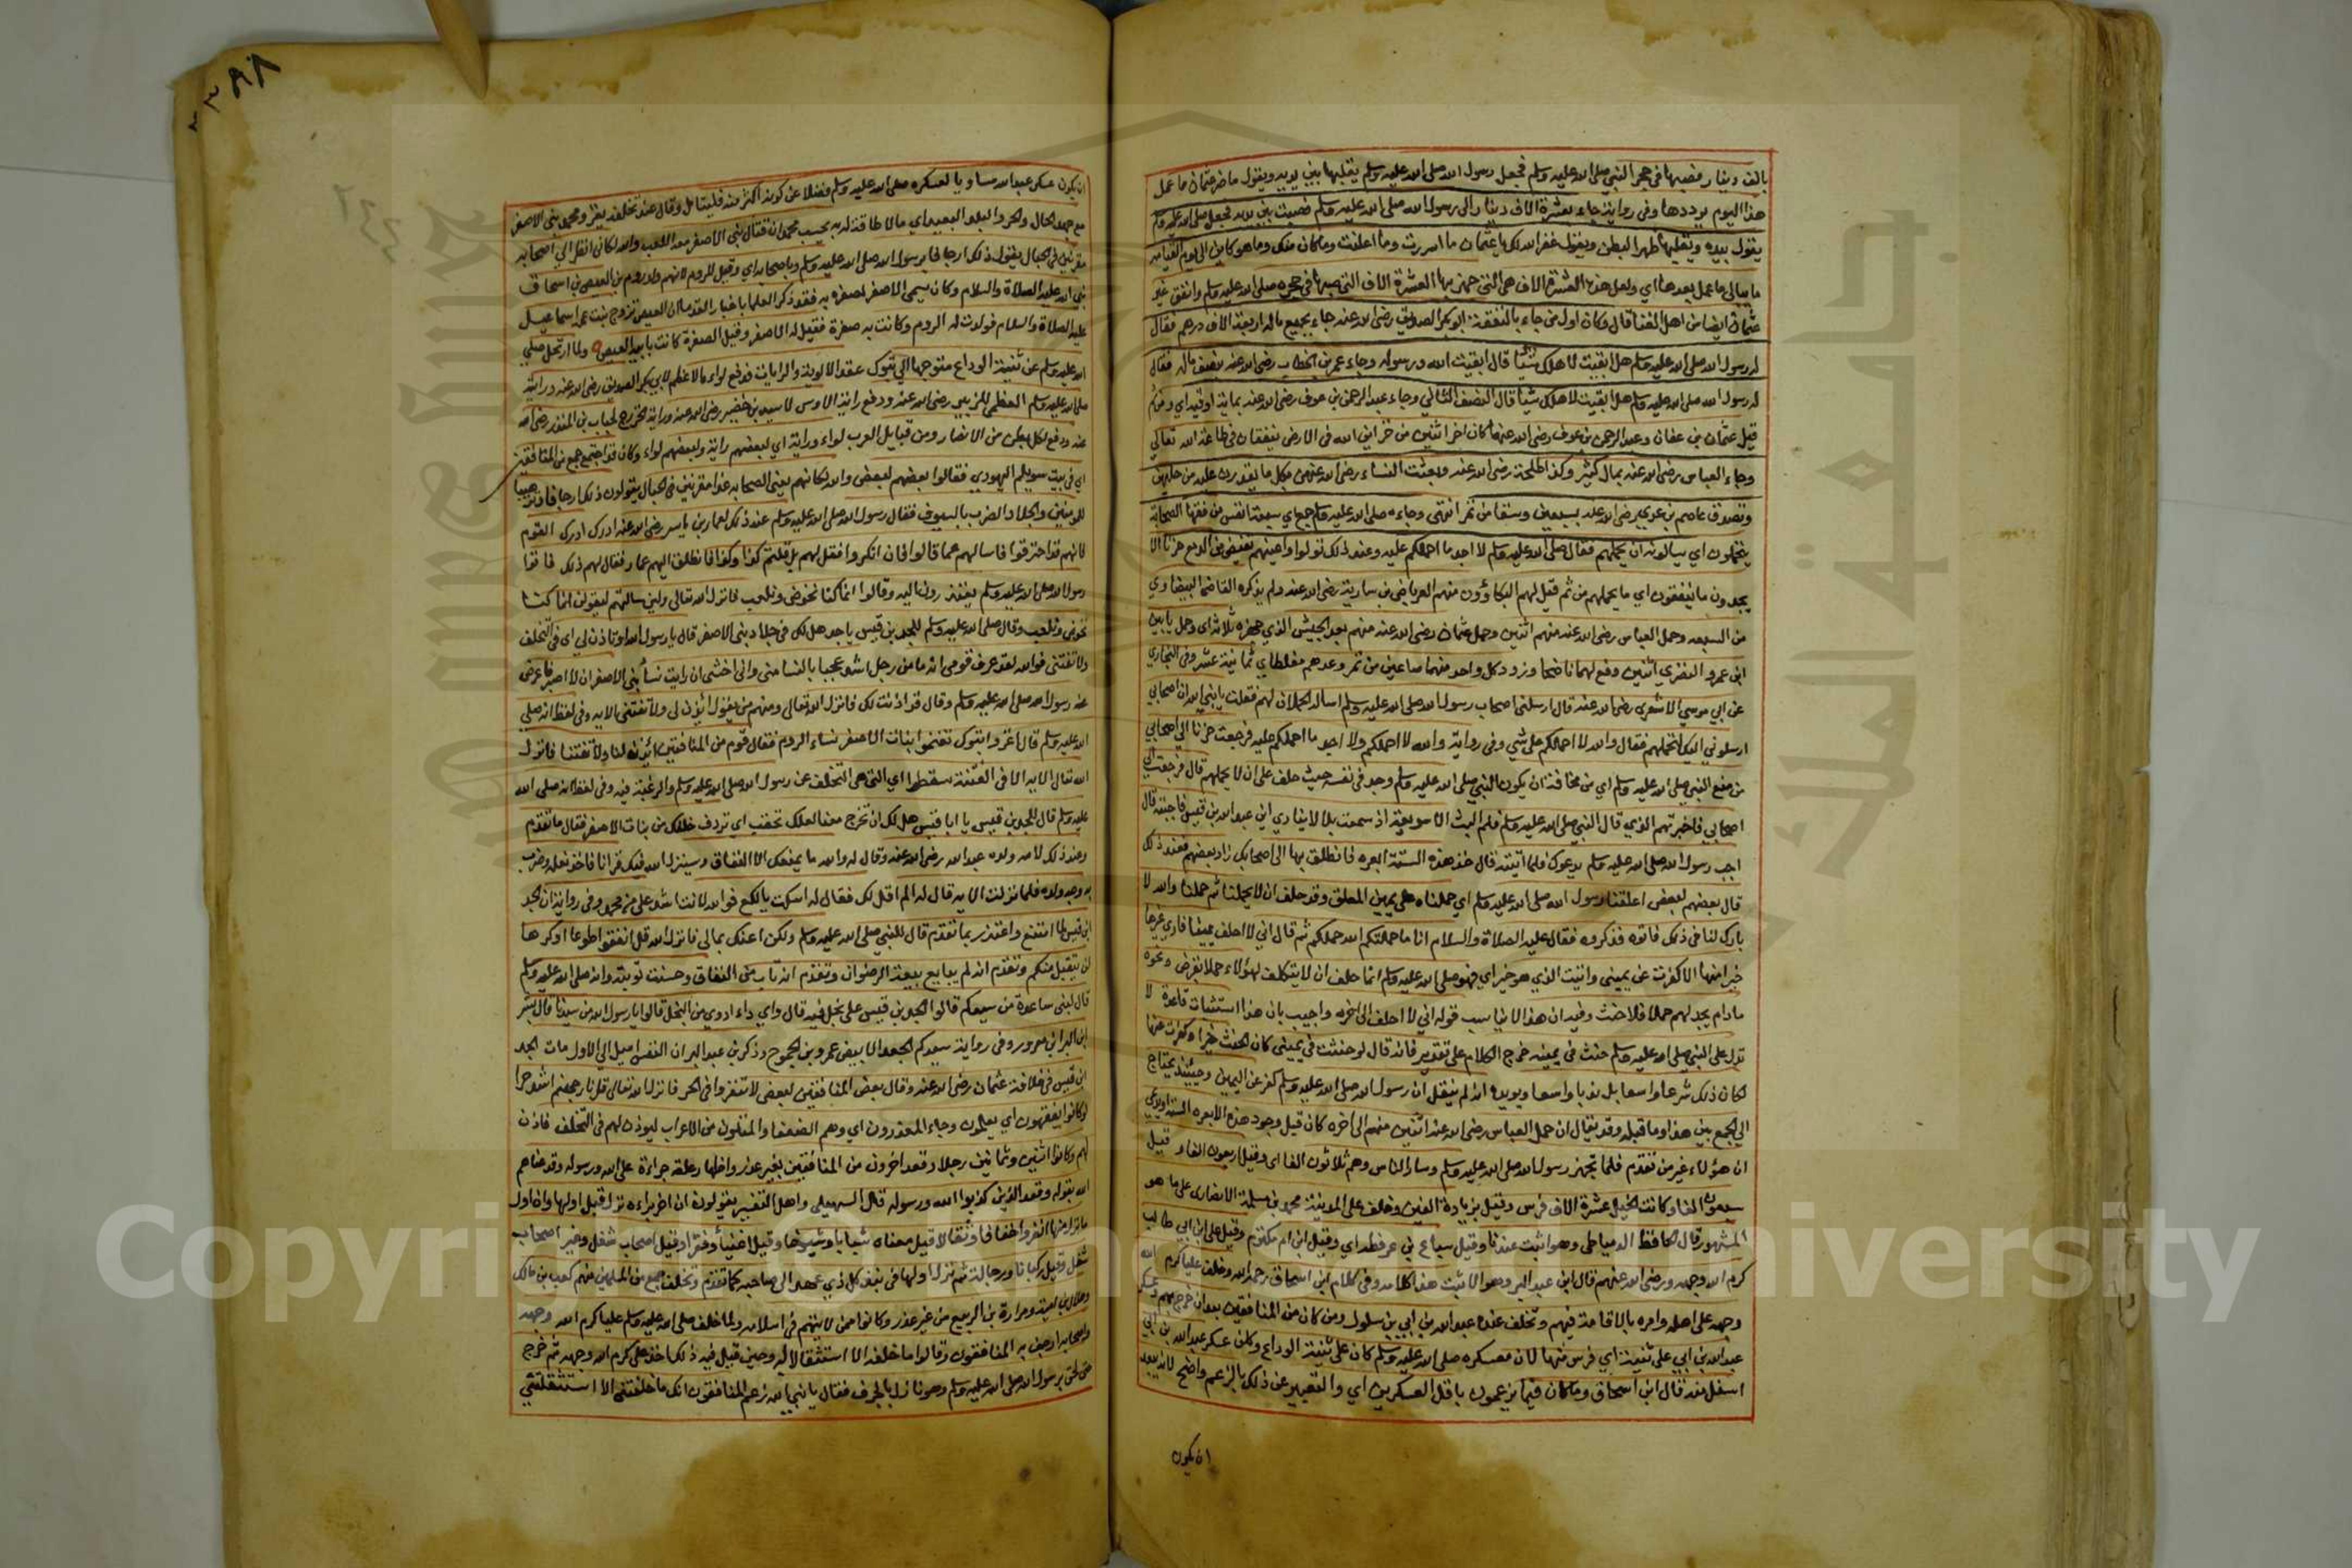 بالف دينار فصبها في حجر النبي صلى الله عليه وسلم فجعل رسول الله صلى الله عليه وسلم يقلبها بين يديه ويقول ما ضر عثمان ما عمل
هذا اليوم يرددها وفي رواية جاء بعشرة الاف دينار الى رسول الله صلى الله عليه وسلم فصبت بين يديه فجعل صلى الله عليه وسلم
يقول بيده ويقلبها ظهرا لبطن ويقول غفر الله لك يا عثمان ما اسررت وما اعلنت وما كان منك وما هو كاين الى يوم القيامه
ما يبالي ما عمل بعدها اي ولعل هذه العشرة الاف هي التي جهز بها العشرة الاف التي صبها في حجره صلى الله عليه وسلم وانفق غير
عثمان ايضا من اهل الغنا قال وكان اول من جاء بالنفقة ابو بكر الصديق رضي الله عنه جاء بجميع ماله اربعة الاف درهم فقال
له رسول الله صلى الله عليه وسلم هل ابقيت لاهلك شيئا قال ابقيت الله ورسوله وجاء عمر بن الخطاب رضي الله عنه بنصف ماله فقال
له رسول الله صلى الله عليه وسلم هل ابقيت لاهلك شيئا قال النصف الثاني وجاء عبد الرحمن بن عوف رضي الله عنه بماية اوقية اي ومن ثم
قيل عثمان بن عفان وعبد الرحمن بن عوف رضي الله عنهما كانا خزانتين من خزاين الله في الارض ينفقان في طاعة الله تعالى
وجاء العباس رضي الله عنه بمال كثير وكذا طلحة رضي الله عنه وبعثت النساء رضي الله عنهن بكل ما يقدرن عليه من حليهن
وتصدق عاصم بن عدي رضي الله عنه بسبعين وسقا من تمر انتهى وجاءه صلى الله عليه وسلم جمع اي سبعة انفس من فقهاء الصحابة
يتحملون اي يسالونه ان يحملهم فقال صلى الله عليه وسلم لا اجد ما احملكم عليه وعند ذلك تولوا واعينهم تفيض من الدمع حزنا الا
يجدون ما ينفقون اي ما يحملهم من ثم قيل لهم البكاؤون منهم العرباض بن سارية رضي الله عنه ولم يذكره القاضي البيضاوي
من السبعه وحمل العباس رضي الله عنه منهم اثنين وحمل عثمان رضي الله عنه منهم بعد الجيش الذي جهزه ثلاثة اي وحمل يامين
ابن عمرو النضري اثنين دفع لهما ناضحا وزود كل واحد منهما صاعين من تمر وعدهم مغلطاي ثمانية عشر وفي البخاري
عن ابي موسي الاشعري رضي الله عنه قال ارسلني اصحاب رسول الله صلى الله عليه وسلم اساله الحملان لهم فقلت يا نبي الله ان اصحابي
ارسلوني اليك لتحملهم فقال والله لا احملكم على شي وفي رواية والله لا احملكم ولا اجد ما احملكم عليه فرجعت حزنا الى اصحابي
من منع النبي صلى الله عليه وسلم اي من مخافة ان يكون النبي صلى الله عليه وسلم وجد في نفسه حيث حلف على ان لا يحملهم قال فرجعت الى
اصحابي فاخبرتهم الذي قال النبي صلى الله عليه وسلم فلم البث الا سويعة اذ سمعت بلالا ينادي اين عبد الله بن قيس فاجبته قال
اجب رسول الله صلى الله عليه وسلم يدعوك فلما اتيته قال خذ هذه الستة ابعره فانطلق بها الى اصحابك زاد بعضهم فعند ذلك
قال بعضهم لبعض اغلقنا رسول الله صلى الله عليه وسلم اي حملناه على يمين المغلق وقد حلف ان لا يحملنا ثم حملنا والله لا
بارك لنا في ذلك فاتوه فذكروه فقال عليه الصلاة والسلام انا ما حملتكم الله حملكم ثم قال اني لا احلف يمينا فارى غيرها
خيرا منها الا كفرت عن يميني واتيت الذي هو خير اي فهو صلى الله عليه وسلم انما حلف ان لا يتكلف لهؤلاء حملا بقرض ونحوه
مادام يجد لهم حملا فلا حنث وفيه ان هذا لا يناسب قوله اني لا احلف الى اخره واجيب بان هذا استثناف قاعدة لا
تدل على النبي صلى الله عليه وسلم حنث في يمينه خرج الكلام على تقدير فانه قال لو حنثت في يميني كان الحنث خيرا وكفرت عنها
لكان ذلك شرعا واسعا بل ندبا واسعا ويويده انه لم ينقل ان رسول الله صلى الله عليه وسلم كفر عن اليمين وحينئذ يحتاج
الي الجمع بين هذا وما قبله وقد يقال ان حمل العباس رضي الله عنه اثنين منهم الى اخره كان قبل وجود هذه الابعره الستة او يدعي
ان هؤلاء غير من تقدم فلما تجهز رسول الله صلى الله عليه وسلم وسار بالناس وهم ثلاثون الفا اي وقيل اربعون الفا وقيل
سبعون الفا وكانت الخيل عشرة الاف فرس وقيل بزيادة الفين وخلف على المدينة محمد بن مسلمة الانصاري على ما هو
المشهور قال الحافظ الدمياطي وهو اثبت عندنا وقيل سباع بن عرفطه اي وقيل ابن ام مكتوم وقيل على ابن ابي طالب
كرم الله وجهه ورضي الله عنهم قال ابن عبد البر وهو الاثبت هذا كلامه وفي كلام ابن اسحاق رحمه الله وخلف عليا كرم الله
وجهه على اهله وامره بالاقامة فيهم وتخلف عنه عبد الله بن ابي بن سلول ومن كان من المنافقين بعد ان خرج بهم وعسكر
عبد الله بن ابي على ثنية اي فرس منها لان معسكره صلى الله عليه وسلم كان على ثنية الوداع وكان عسكر عبد الله بن ابي
اسفل منه قال ابن اسحاق وما كان فيما يزعمون باقل العسكرين اي والتعبير عن ذلك بالزعم واضح لانه يبعد
ان يكون
ان يكون عسكر عبد الله مساويا لعسكره صلى الله عليه وسلم فضلا عن كونه اكثر منه فليتامل وقال عند تخلفه يغزو محمد بني الاصفر
مع جهد الحال والحر والبلد البعيد اي ما لا طاقة له به يحسب محمد ان قتال بني الاصفر معه اللعب والله لكاني انظر الى اصحابه
مقرنين في الحبال يقول ذلك ارجافا برسول الله صلى الله عليه وسلم وباصحابه اي وقيل للروم لانهم ولد روم بن العيص بن اسحاق
نبي الله عليه الصلاة والسلام وكان يسمى الاصفر لصفره به فقد ذكر العلما باخبار القدما ان العيص تزوج بنت عمه اسماعيل
عليه الصلاة والسلام فولدت له الروم وكانت به صفرة فقيل له الاصفر وقيل الصفرة كانت بابيه العيص ولما ارتحل صلى
الله عليه وسلم عن ثنية الوداع متوجها الي تبوك عقد الالوية والرايات فدفع لواءه الاعظم لابي بكر الصديق رضي الله عنه ورايته
صلى الله عليه وسلم العظمى للزبير رضي الله عنه ودفع راية الاوس لاسيد بن حضير رضي الله عنه وراية الخزرج لحباب بن المنذر رضي الله
عنه ودفع لكل بطن من الانصار ومن قبايل العرب لواء وراية اي لبعضهم راية ولبعضهم لواء وكان قد اجتمع جمع من المنافقين
اي في بيت سويلم اليهودي فقالوا بعضهم لبعض والله لكانهم يعني الصحابه غدا مقرنين في الحبال يقولون ذلك ارجافا وترهيبا
للمؤمنين والجلاد الضرب بالسيوف فقال رسول الله صلى الله عليه وسلم عند ذلك لعمار بن ياسر رضي الله عنه ادرك ادرك القوم
فانهم قد احترقوا فاسالهم عما قالوا فان انكروا فقل لهم بل قلتم كذا وكذا فانطلق اليهم عمار فقال لهم ذلك فاتوا
رسول الله صلى الله عليه وسلم يعتذرون اليه وقالوا انما كنا نخوض ونلعب فانزل الله تعالى ولئن سالتهم ليقولن انما كنا
نخوض ونلعب وقال صلى الله عليه وسلم للجد بن قيس يا جد هل لك في جلاد بني الاصفر قال يا رسول الله او تاذن لي اي في التخلف
ولا تفتني فوالله لقد عرف قومي انه ما من رجل اشد عجبا بالنسا مني واني اخشى ان رايت نسأ بني الاصفر ان لا اصبر فاعرض
عنه رسول الله صلى الله عليه وسلم وقال قد اذنت لك فانزل الله تعالى ومنهم من يقول ائذن لي ولا تفتني الايه وفي لفظ انه صلى
الله عليه وسلم قال اغزوا تبوك تغنموا بنات الاصفر نساء الروم فقال قوم من المنافقين ائذن لنا ولا تفتنا فانزل
الله تعالى الايه الا في الفتنة سقطوا اي التي هي التخلف عن رسول الله صلى الله عليه وسلم والرغبة فيه وفي لفظ انه صلى الله
عليه وسلم قال للجد بن قيس يا ابا قيس هل لك ان تخرج معنا لعلك تحقب اي تردف خلفك من بنات الاصفر فقال ما تقدم
وعند ذلك لامه ولده عبد الله رضي الله عنه وقال له والله ما يمنعك الا النفاق وسينزل الله فيك قرانا فاخذ نعله وضرب
به وجه ولده فلما نزلت الايه قال له الم اقل لك فقال له اسكت يا لكع فوالله لانت اشد علي من محمد وفي رواية ان الجد
ابن قيس لما امتنع واعتذر بما تقدم قال للنبي صلى الله عليه وسلم ولكن اعنك بمالي فانزل الله قل انفقوا طوعا او كرها
لن يتقبل منكم وتقدم انه لم يبايع بيعة الرضوان وتقدم انه تاب من النفاق وحسنت توبته وانه صلى الله عليه وسلم
قال لبني ساعدة من سيدكم قالوا الجد بن قيس على بخل فيه قال واي داء ادوى من البخل قالوا يا رسول الله من سيدنا قال بشر
ابن البرا بن معرور وفي رواية سيدكم الجعد الابيض عمرو بن الجموح وذكر بن عبد البر ان النفس اميل الي الاول مات الجد
ابن قيس في خلافة عثمان رضي الله عنه وقال بعض المنافقين لبعض لا تنفروا في الحر فانزل الله تعالى قل نار جهنم اشد حرا
لو كانوا يفقهون اي يعلمون وجاء المعذرون اي وهم الضعفا والمقلون من الاعراب ليوذن لهم في التخلف فاذن
لهم وكانوا اثنين وثمانين رجلا وقعد اخرون من المنافقين بغير عذر واظهار علة جراءة على الله ورسوله وقد عناهم
الله بقوله وقعد الذين كذبوا الله ورسوله قال السهيلي واهل التفسير يقولون ان اخر براءه نزل قبل اولها وان اول
ما نزل منها انفروا خفافا وثقالا قيل معناه شبابا وشيوخا وقيل اغنيأ وفقرا وقيل اصحاب شغل وغير اصحاب
شغل وقيل ركبانا ورجالة ثم نزل اولها في نبذ كل ذي عهد الى صاحبه كما تقدم وتخلف جمع من المسلمين منهم كعب بن مالك
وهلال بن امية ومرارة بن الربيع من غير عذر وكانوا ممن لا يتهم في اسلامه ولما خلف صلى الله عليه وسلم عليا كرم الله وجهه
ارجف به المنافقون وقالوا ما خلفه الا استثقالا له وحين قيل فيه ذلك اخذ على كرم الله وجهه ثم خرج
حتى لحق برسول الله صلى الله عليه وسلم وهو نازل بالجرف فقال يا نبي الله زعم المنافقون انك ما خلفتني الا استثقلتني
٢٤٤
Copyright © King Saud University
جامعة الملك سعود